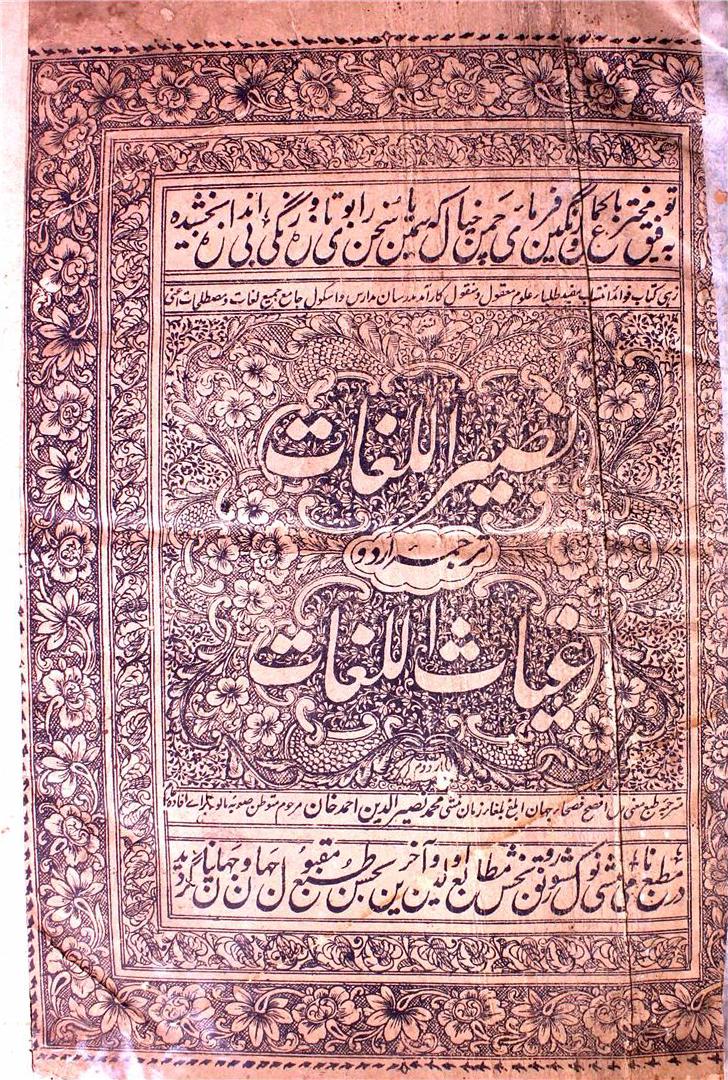 به توفیق مخترع با کمال و رنگین فرمائی چمن خیال که یاسمین سخن را بوی تازه و رنگی بی اندازه بخشیده
زهی کتاب فوائد انتساب مفید طلباء علوم معقول و منقول کارآمد مدرسان مدارس و اسکول جامع جمیع لغات و مصطلحات
نصیر اللغات
ترجمہ اردو
غیاث اللغات
بار دوم
افصح فصحاء جهان ابلغ بلغاء زمان منشی محمد نصیر الدین احمد خان مرحوم متوطن صوبه مالوہ
در مطبع نامی منشی نولکشور رونق بخش مطابع اولین و آخرین بحسن طبع مقبول جهان و جهانیان گردید